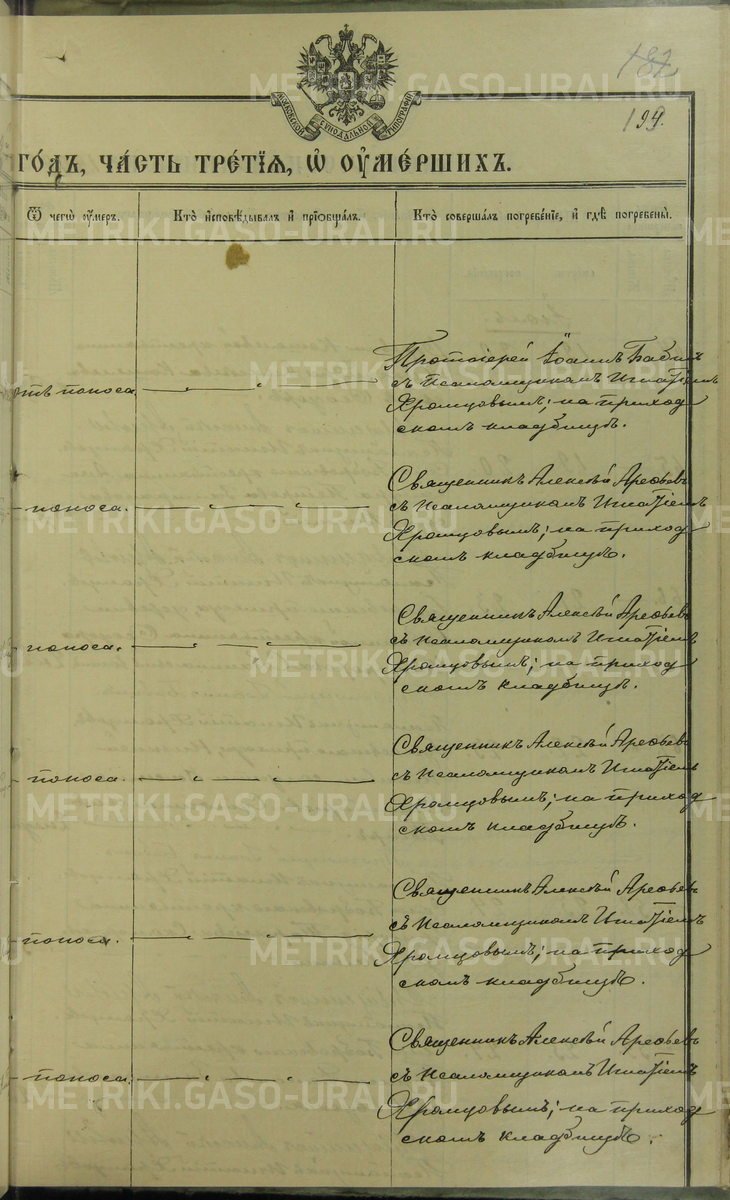 182
194.
МОСКОВСКОЙ СѴНОДАЛЬНОЙ ТИПОГРАФІИ
ГО́ДЪ, ЧА́СТЬ ТРЕ́ТІѦ, Ѡ҆ ОУ҆МЕ́РШИХЪ.
Ѿ чегѡ̀ оу҆́меръ.
Кто̀ и҆сповѣ́дывалъ и҆ прїѡбща́лъ.
Кто̀ соверша́лъ погребе́нїе, и҆ гдѣ̀ погребены̀.
отъ поноса
Протоіерей Іоаннъ Бабинъ
съ Псаломщикомъ Игнатіемъ
Хромцовымъ; на приход
скомъ кладбищѣ.
поноса.
Священникъ Алексѣй Арефьевъ
съ Псаломщикомъ Игнатіемъ
Хромцовымъ; на приход
скомъ кладбищѣ.
поноса.
Священникъ Алексѣй Арефьевъ
съ Псаломщикомъ Игнатіемъ
Хромцовымъ; на приход
скомъ кладбищѣ.
поноса.
Священникъ Алексѣй Арефьевъ
съ Псаломщикомъ Игнатіемъ
Хромцовымъ; на приход
скомъ кладбищѣ.
поноса.
Священникъ Алексѣй Арефьевъ
съ Псаломщикомъ Игнатіемъ
Хромцовымъ; на приход
скомъ кладбищѣ.
поноса.
Священникъ Алексѣй Арефьевъ
съ Псаломщикомъ Игнатіемъ
Хромцовымъ; на приход
скомъ кладбищѣ.
METRIKI.GASO-URAL.RU